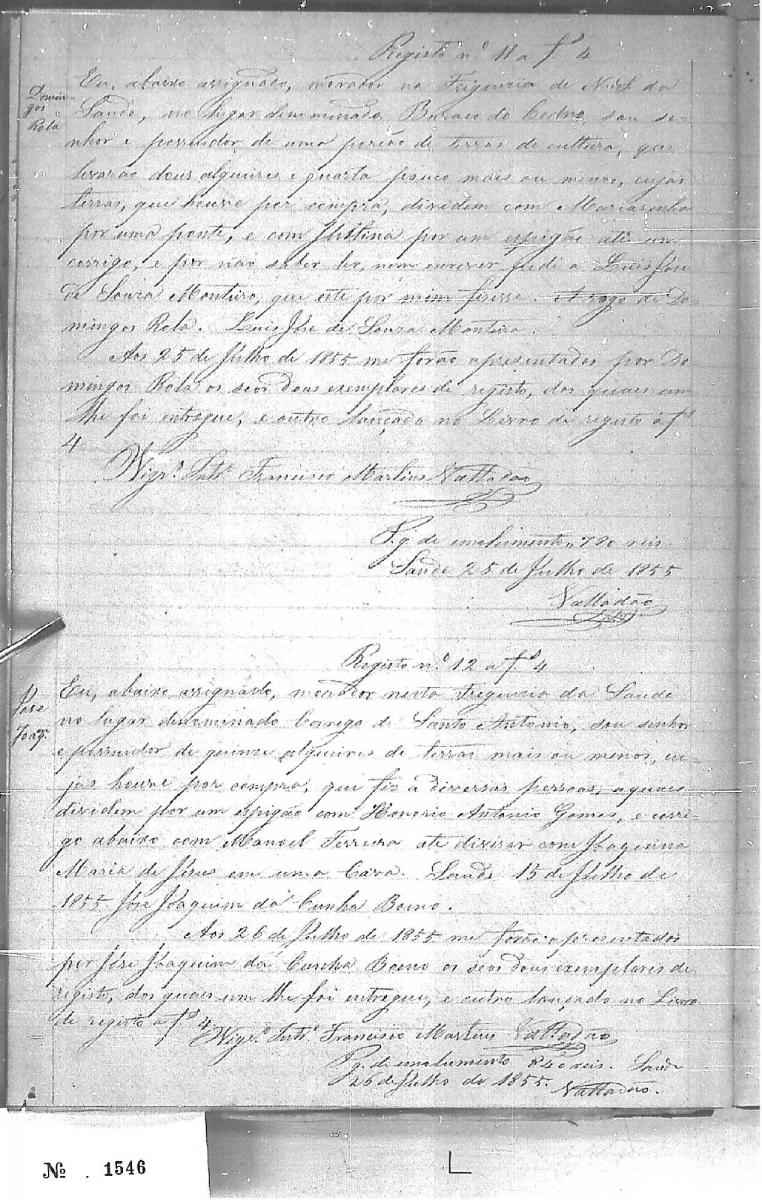 Registo n.º 11 a fs 4
Domin-
gos
Rola
Eu, abaixo assignado, morador na Freguezia de N. S. da
Saude, no lugar denominado Buraco do Cedro, sou se-
nhor e possuidor de uma porção de terras de cultura, que
levarão dous alqueires e quarta pouco mais ou menos, cujas
terras, que houve por compra, dividem com Mariasinha
por uma ponte, e com Justina por um espigão até um
corrigo, e por não saber ler, nem escrever pedi a Luis Jose
de Souza Monteiro, que este por mim fizesse. A rogo de Do-
mingos Rola. Luis Jose de Souza Monteiro.
Aos 25 de Julho de 1855 me forão apresentados por Do-
mingos Rola os seos dous exemplares de registo, dos quaes um
lhe foi entregue, e outro lançado no Livro de registo a fs
4
Vigr.º Francisco Martins Valladão
Pg. de emolumento 790 reis
Saude 25 de Julho de 1855
Valladão
Registo n.º 12 a fs 4
Jose
Joaq.
Eu, abaixo assignado, morador nesta Freguezia da Saude
no lugar denominado Corrego de Santo Antonio, sou senhor
e possuidor de quinze alqueires de terras mais ou menos, cu-
jas houve por compra, que fiz a diversas pessoas, aquaes
dividem por um espigão com Honorio Antonio Gomes, e corri-
go abaixo com Manoel Ferreira até divisar com Joaquina
Maria de Jesus em uma Cava. Saude 15 de Julho de
1855 José Joaquim da Cunha Boeno.
Aos 26 de Julho de 1855 me forão apresentados
por Jose Joaquim da Cunha Boeno os seos dous exemplares de
registo, dos quaes um lhe foi entregue, e outro lançado no Livro
de registo a fs 4 Vigr.º Francisco Martins Valladão
Pg. de emolumento 840 reis. Saude
26 de Julho de 1855. Valladão.
Nº . 1546